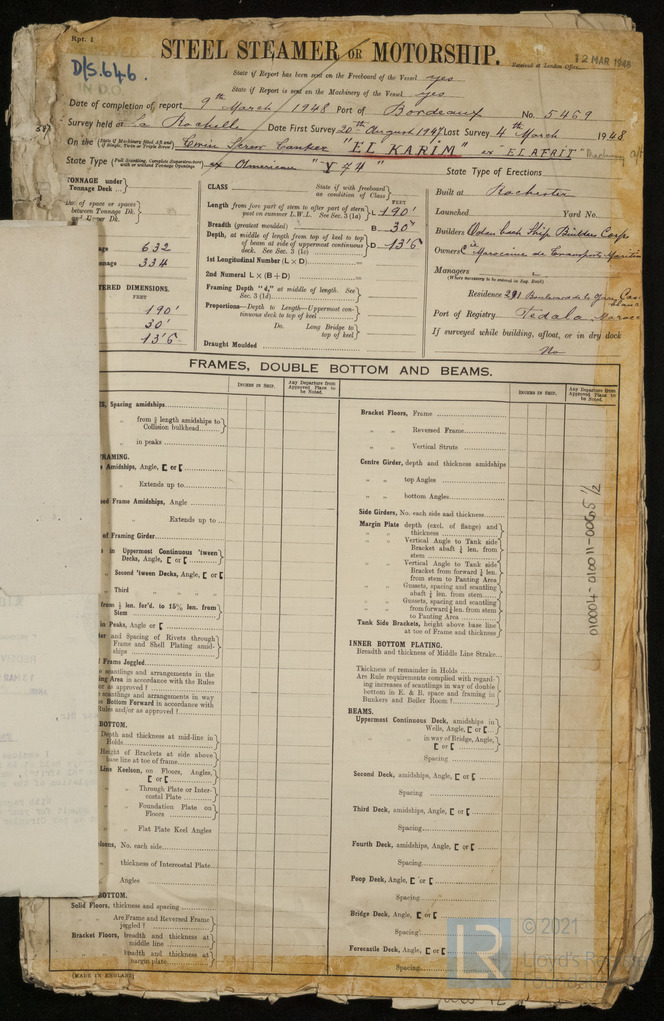 Rpt. 1
D/S.646.
STEEL STEAMER OR MOTORSHIP.
Received at London Office
12 MAR 1948
State if Report has been sent on the Freeboard of the Vessel yes
State if Report is sent on the Machinery of the Vessel yes
Date of completion of report 9th March 1948 Port of Bordeaux No. 5469
Survey held at La Rochelle Date First Survey 20th August 1947 Last Survey 4th March 1948
On the Twin Screw Tanker "EL KARIM" ex "EL AFRIT"
State Type ex American "Y 74" State Type of Erections
TONNAGE under
Tonnage Deck
632
334
FEET
190'
30'
13'6
CLASS State if with freeboard as condition of Class
FEET
Length from fore part of stem to after part of stern post on summer L.W.L. See Sec. 3 (1a) L 190'
Breadth (greatest moulded) B 30'
Depth, at middle of length from top of keel to top of beam at side of uppermost continuous deck. See Sec. 3 (1c) D 13'6
1st Longitudinal Number (L × D)
2nd Numeral L × (B + D)
Framing Depth "d," at middle of length. See Sec. 3 (1d)
Proportions—Depth to Length—Uppermost continuous deck to top of keel
Do. Long Bridge to top of keel
Draught Moulded
Built at Rochester
Launched Yard No.
Builders Odenbach Ship Builders Corps
Owners Cie Marocaine de Transports Maritim
Managers
(Where necessary to be entered in Reg. Book)
Residence 291 Boulevard de la Gare, Casablanca
Port of Registry Fedala Maroc
If surveyed while building, afloat, or in dry dock
No
FRAMES, DOUBLE BOTTOM AND BEAMS.
INCHES IN SHIP.
Any Departure from Approved Plans to be Noted.
INCHES IN SHIP.
Any Departure from Approved Plans to be Noted.
Spacing amidships
from ⅕ length amidships to Collision bulkhead
in peaks
Amidships, Angle, [ or [
Extends up to
Frame Amidships, Angle
Extends up to
of Framing Girder
in Uppermost Continuous 'tween Decks, Angle, [ or [
Second 'tween Decks, Angle, [ or [
Third
from ⅕ len. for'd. to 15% len. from Stem
in Peaks, Angle or [
and Spacing of Rivets through Frame and Shell Plating amidships
Frame Joggled
scantlings and arrangements in the
Area in accordance with the Rules
or as approved ?
scantlings and arrangements in way
Bottom Forward in accordance with
Rules and/or as approved ?
BOTTOM.
Depth and thickness at mid-line in Holds
Height of Brackets at side above base line at toe of frame
Line Keelson, on Floors, Angles, [ or [
Through Plate or Intercostal Plate
Foundation Plate on Floors
Flat Plate Keel Angles
No. each side
thickness of Intercostal Plate
Angles
BOTTOM.
Solid Floors, thickness and spacing
Are Frame and Reversed Frame joggled ?
Bracket Floors, breadth and thickness at middle line
breadth and thickness at margin plate
(MADE IN ENGLAND)
Bracket Floors, Frame
" " Reversed Frame
" " Vertical Struts
Centre Girder, depth and thickness amidships
" " top Angles
" " bottom Angles
Side Girders, No. each side and thickness
Margin Plate depth (excl. of flange) and thickness
Vertical Angle to Tank side Bracket abaft ¼ len. from stem
Vertical Angle to Tank side Bracket from forward ¼ len. from stem to Panting Area
Gussets, spacing and scantling abaft ¼ len. from stem
Gussets, spacing and scantling from forward ¼ len. from stem to Panting Area
Tank Side Brackets, height above base line at toe of Frame and thickness
INNER BOTTOM PLATING.
Breadth and thickness of Middle Line Strake
Thickness of remainder in Holds
Are Rule requirements complied with regarding increases of scantlings in way of double bottom in E. & B. space and framing in Bunkers and Boiler Room ?
BEAMS.
Uppermost Continuous Deck, amidships in Wells, Angle, [ or [
in way of Bridge, Angle, [ or [
Spacing
Second Deck, amidships, Angle, [ or [
Spacing
Third Deck, amidships, Angle, [ or [
Spacing
Fourth Deck, amidships, Angle, [ or [
Spacing
Poop Deck, Angle, [ or [
Spacing
Bridge Deck, Angle, [ or [
Spacing
Forecastle Deck, Angle, [ or [
Spacing
010004-010011-0065 1/2
LR
© 2021
Lloyd's Register
Foundation